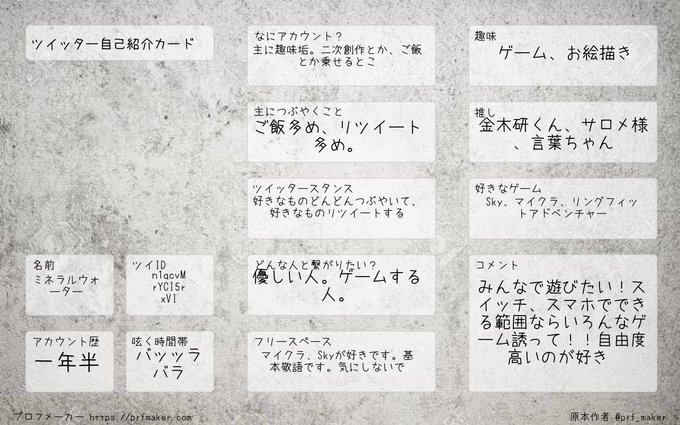 ツイッター自己紹介カード
名前
ミネラルウォ
ーター
ツイID
n1qcvM
rYCI5r
xVI
アカウント歴
一年半
呟く時間帯
バッツラ
バラ
なにアカウント?
主に趣味垢。二次創作とか、ご飯
とか乗せるとこ
主につぶやくこと
ご飯多め、リツイート
多め。
ツイッタースタンス
好きなものどんどんつぶやいて、
好きなものリツイートする
どんな人と繋がりたい?
優しい人。ゲームする
人。
フリースペース
マイクラ、Skyが好きです。基
本敬語です。気にしないで
趣味
ゲーム、お絵描き
推し
金木研くん、サロメ様
、言葉ちゃん
好きなゲーム
Sky、マイクラ、リングフィッ
トアドベンチャー
コメント
みんなで遊びたい!ス
イッチ、スマホででき
る範囲ならいろんなゲ
ーム誘って!!自由度
高いのが好き
プロフメーカー https://prfmaker.com
原本作者 @prf_maker